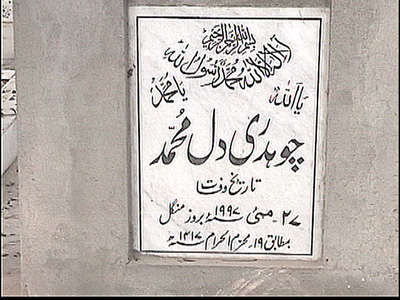 بسم اللہ الرحمن الرحیم
لا الہ الا اللہ محمد رسول اللہ
یا اللہ یا محمد
چوہدری دل محمد
تاریخ وفات
۲۷ مئی ۱۹۹۷ء بروز منگل
بمطابق ۱۹ محرم الحرام ۱۴۱۷ھ